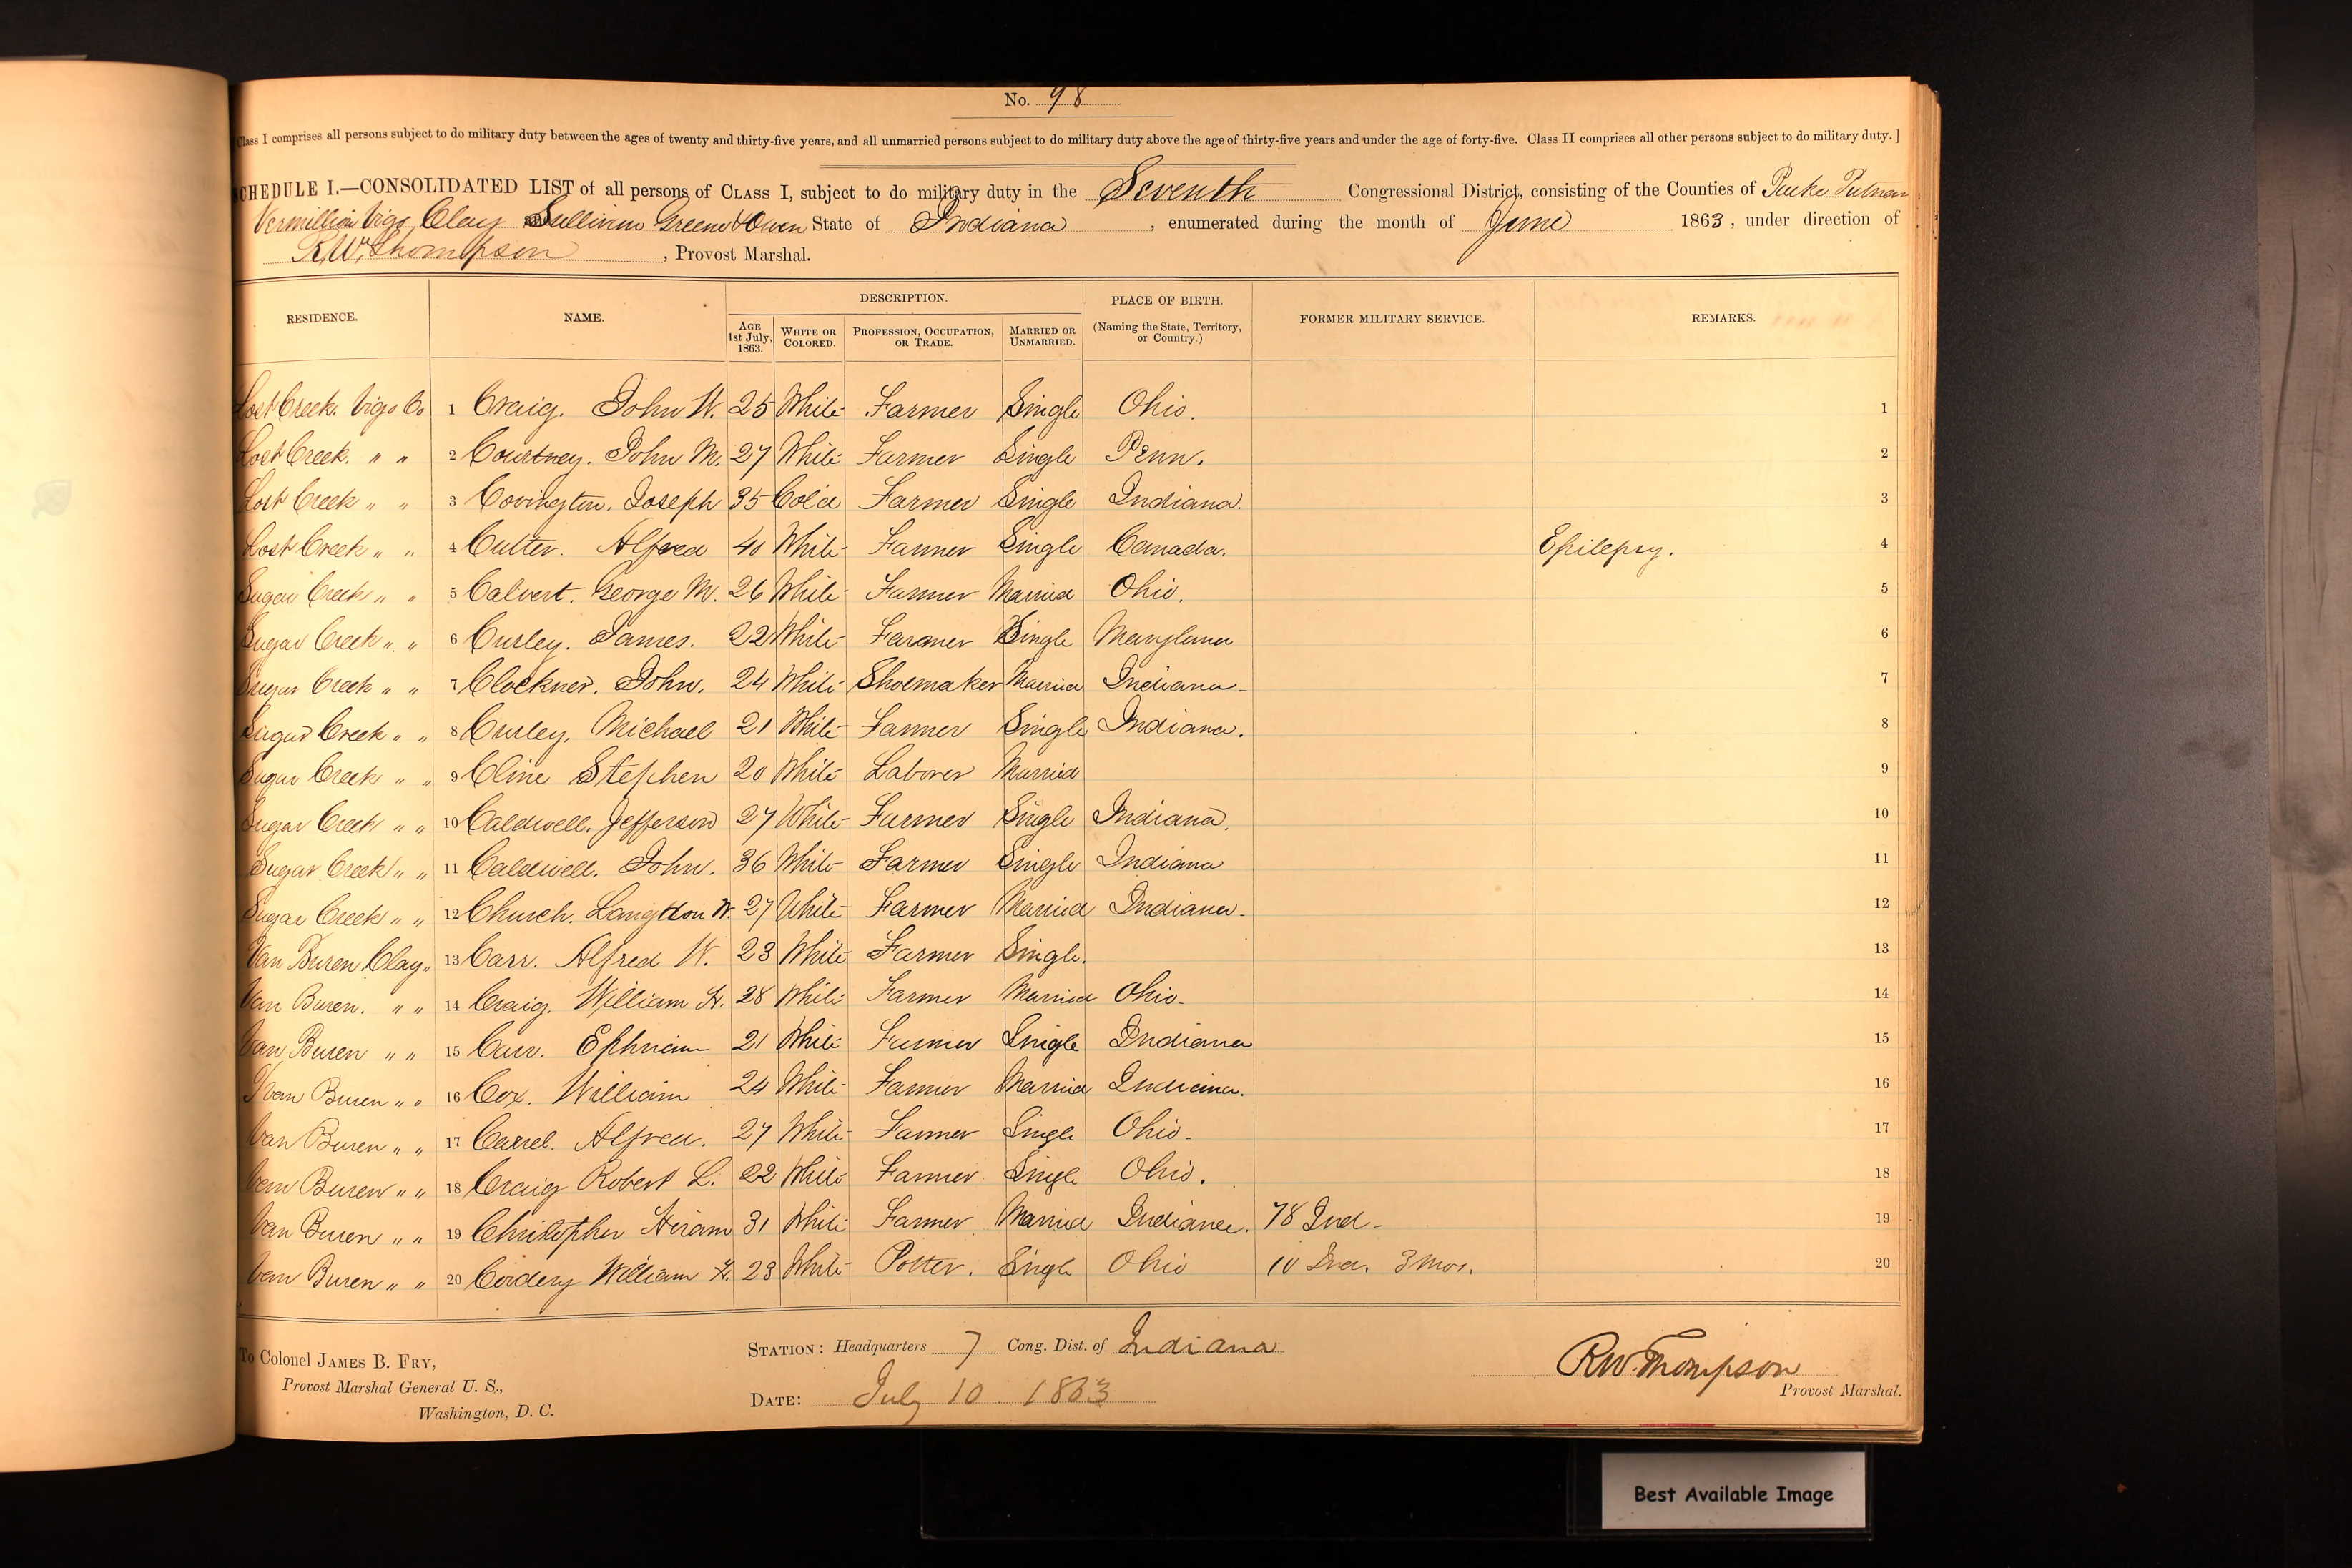 No. 98
Class I comprises all persons subject to do military duty between the ages of twenty and thirty-five years, and all unmarried persons subject to do military duty above the age of thirty-five years and under the age of forty-five. Class II comprises all other persons subject to do military duty.]
SCHEDULE I.—CONSOLIDATED LIST of all persons of CLASS I, subject to do military duty in the Seventh Congressional District, consisting of the Counties of Parke Putnam
Vermillion Vigo Clay Sullivan Greene & Owen State of Indiana, enumerated during the month of June 1863, under direction of
R. W. Thompson, Provost Marshal.
RESIDENCE. NAME. DESCRIPTION. PLACE OF BIRTH. FORMER MILITARY SERVICE. REMARKS.
AGE 1st July, 1863. WHITE OR COLORED. PROFESSION, OCCUPATION, OR TRADE. MARRIED OR UNMARRIED. (Naming the State, Territory, or Country.)
Lost Creek. Vigo Co 1 Craig. John W. 25 White Farmer Single Ohio. 1
Lost Creek. " " 2 Courtney. John M. 27 White Farmer Single Penn. 2
Lost Creek " " 3 Covington. Joseph 35 Col'd Farmer Single Indiana. 3
Lost Creek " " 4 Cutter. Alfred 40 White Farmer Single Canada. Epilepsy. 4
Sugar Creek " " 5 Calvert. George M. 26 White Farmer Married Ohio. 5
Sugar Creek " " 6 Curley. James. 22 White Farmer Single Maryland 6
Sugar Creek " " 7 Clockner. John. 24 White Shoemaker Married Indiana 7
Sugar Creek " " 8 Curley. Michael 21 White Farmer Single Indiana. 8
Sugar Creek " " 9 Cline Stephen 20 White Laborer Married 9
Sugar Creek " " 10 Caldwell. Jefferson 27 White Farmer Single Indiana. 10
Sugar Creek " " 11 Caldwell. John. 36 White Farmer Single Indiana 11
Sugar Creek " " 12 Church. Langston W. 27 White Farmer Married Indiana 12
Van Buren Clay " 13 Carr. Alfred W. 23 White Farmer Single. 13
Van Buren. " " 14 Craig. William H. 28 White Farmer Married Ohio 14
Van Buren " " 15 Carr. Ephriam 21 White Farmer Single Indiana 15
Van Buren " " 16 Cox. William 24 White Farmer Married Indiana. 16
Van Buren " " 17 Carrel. Alfred. 27 White Farmer Single Ohio 17
Van Buren " " 18 Craig Robert L. 22 White Farmer Single Ohio. 18
Van Buren " " 19 Christopher Hiram 31 White Farmer Married Indiana. 78 Ind 19
Van Buren " " 20 Cordery William H. 23 White Potter. Single Ohio 10 Ind. 3 mos. 20
To Colonel JAMES B. FRY,
Provost Marshal General U. S.,
Washington, D. C.
STATION: Headquarters 7 Cong. Dist. of Indiana
DATE: July 10 1863
R W Thompson
Provost Marshal.
Best Available Image